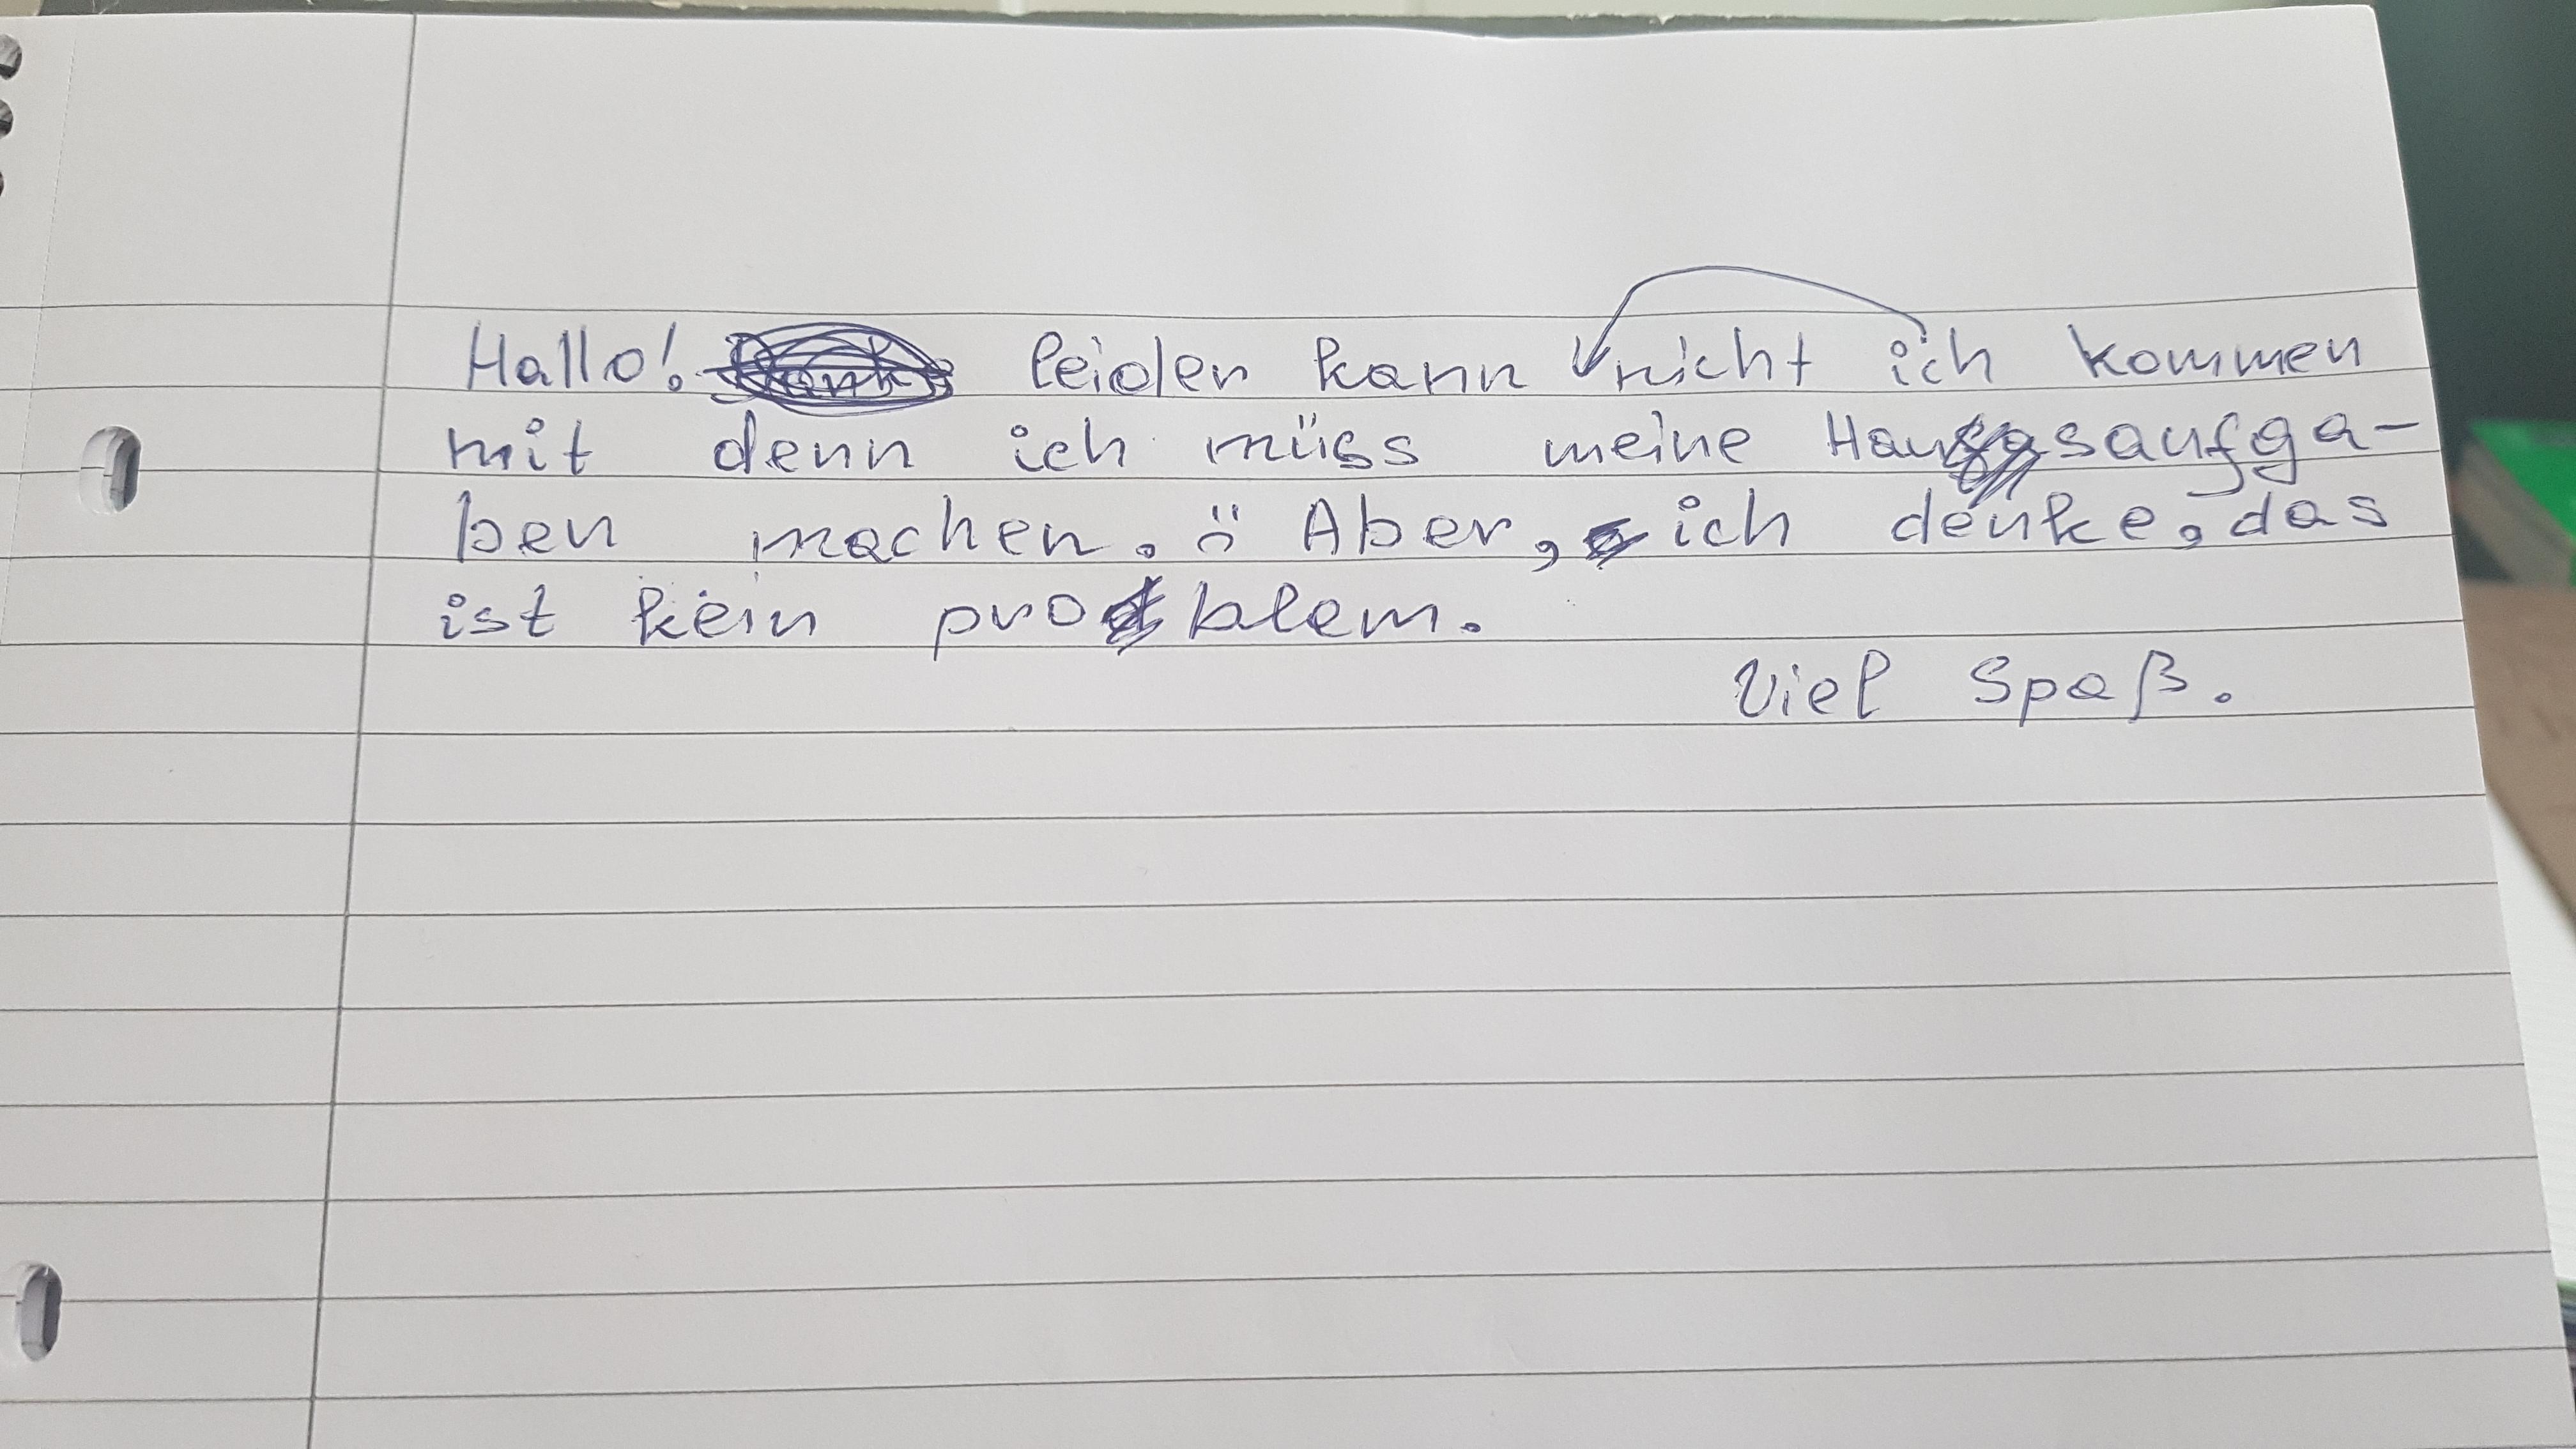 Hallo! leider kann nicht ich kommen
mit denn ich müss meine Hausaufga-
ben machen. :( Aber, ich denke, das
ist kein problem.
Viel Spaß.